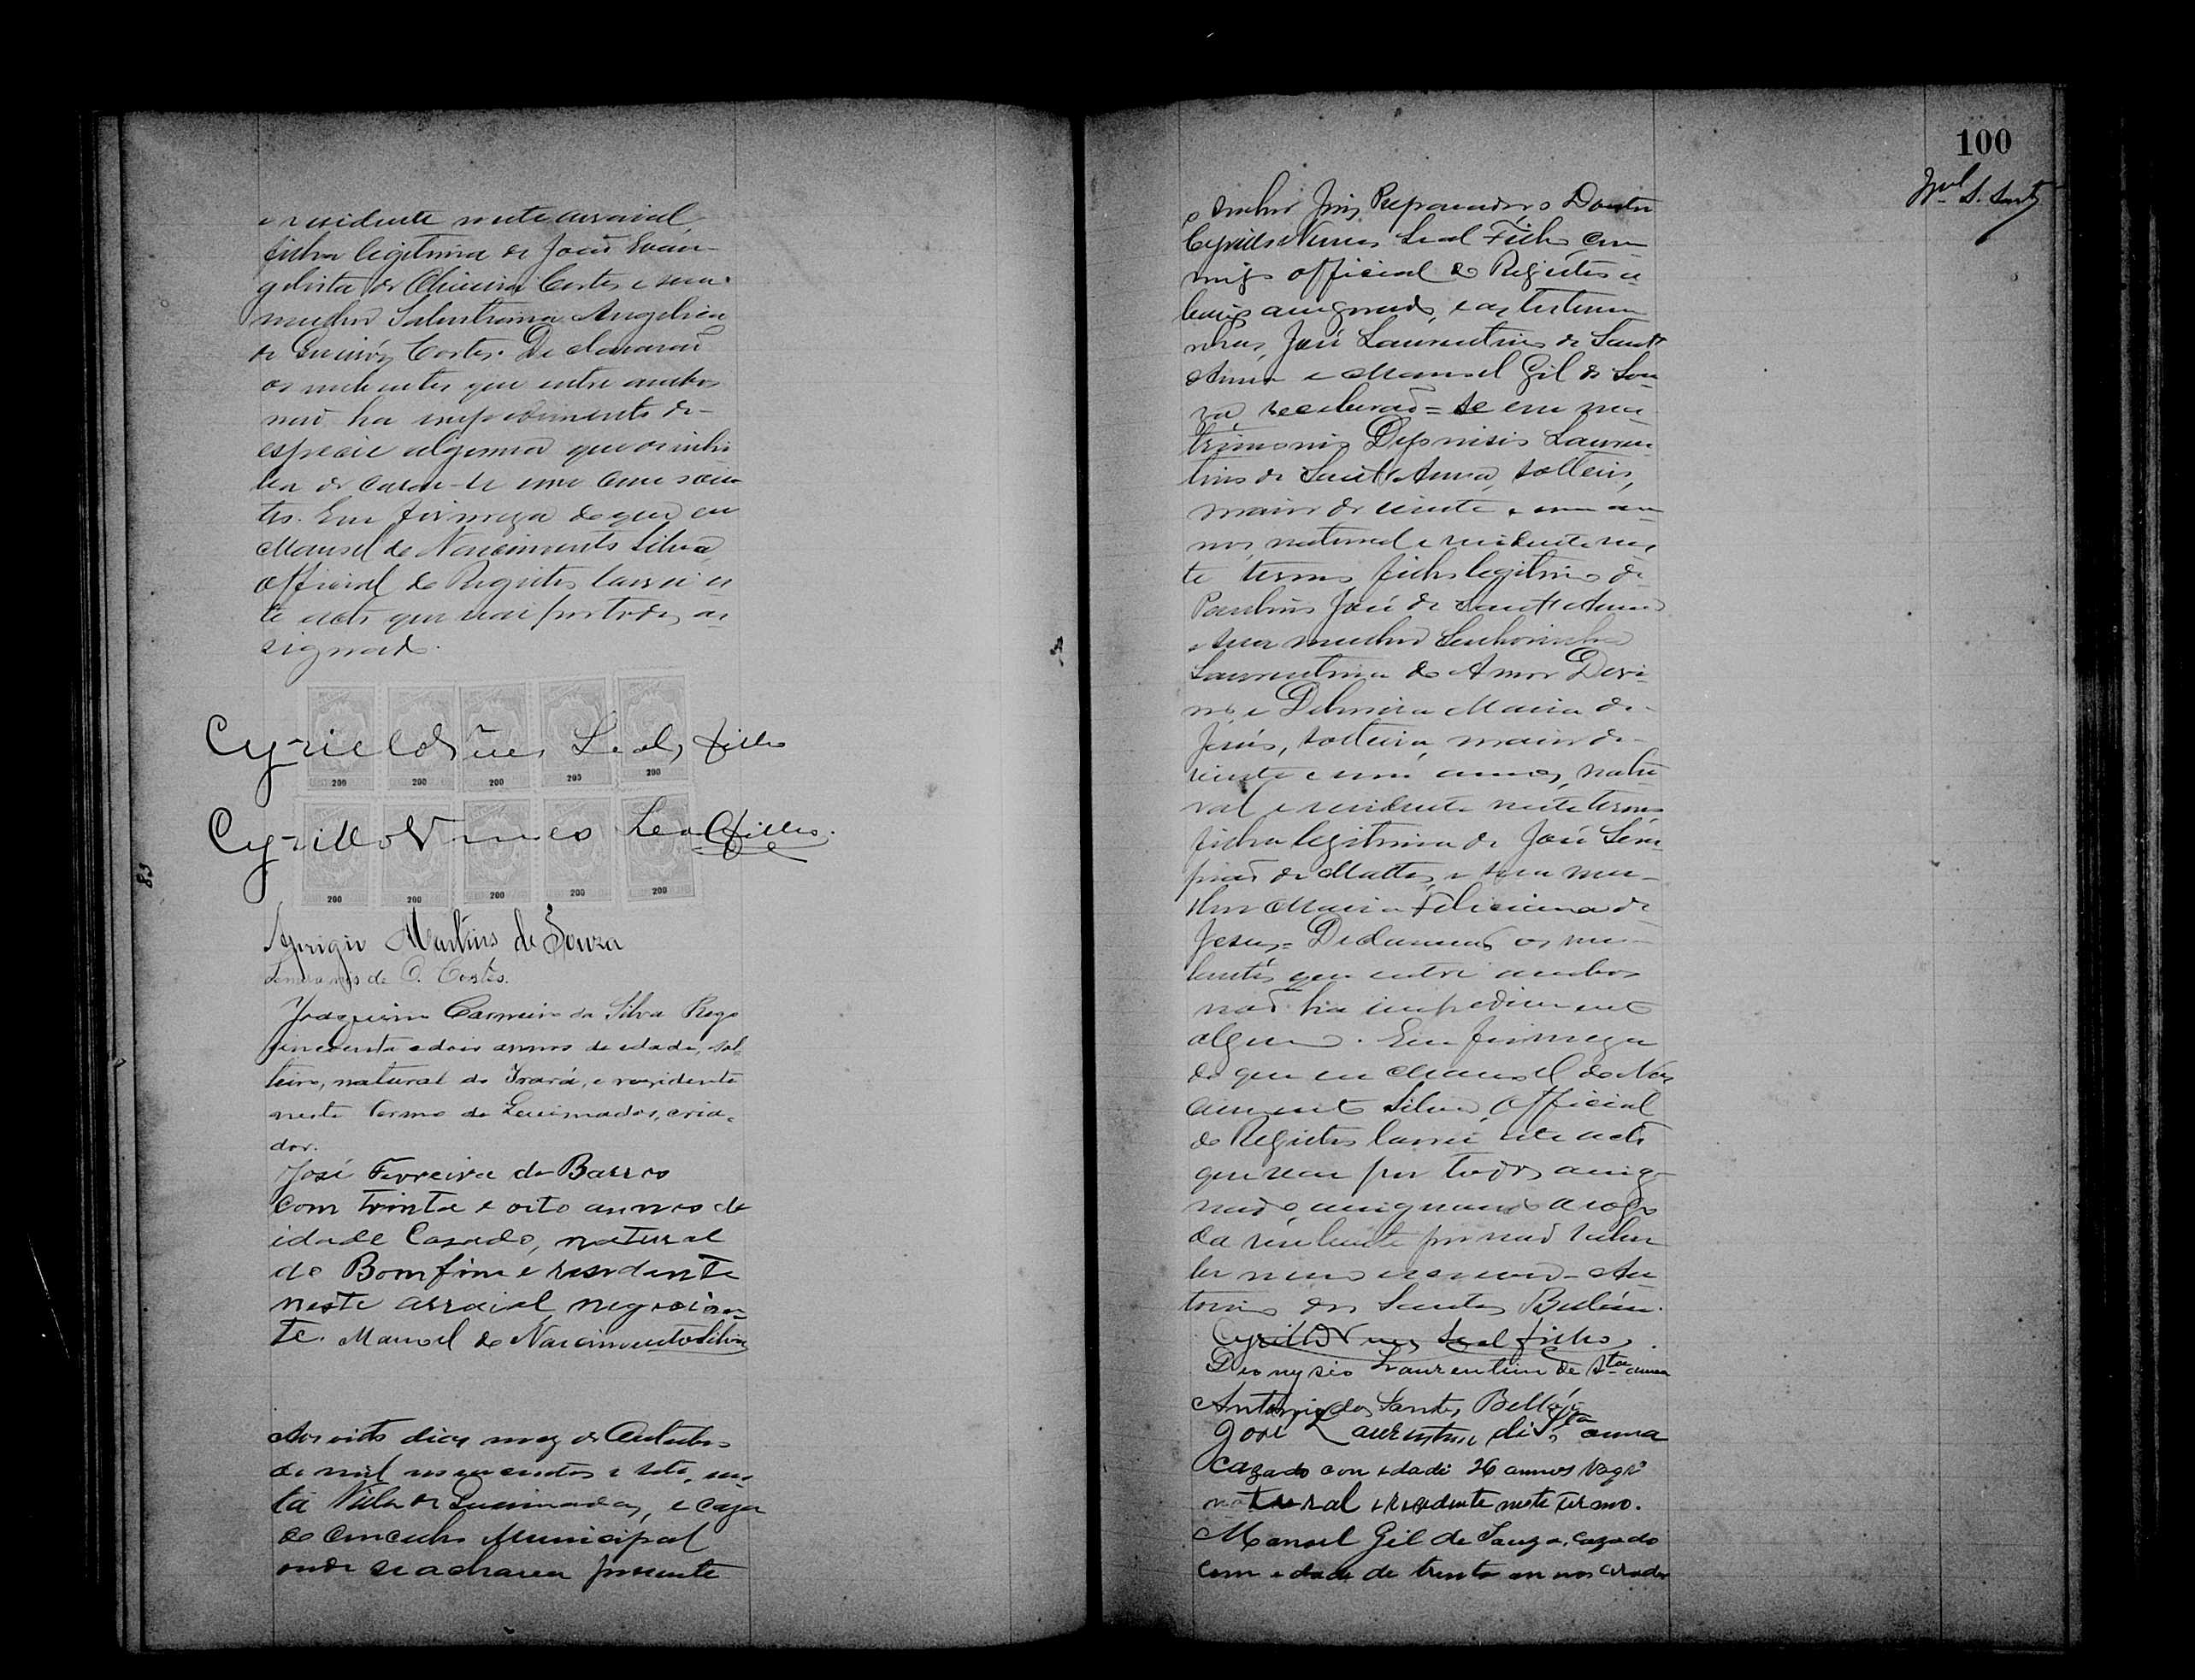 e residente neste arraial,
filha legitima de João Evan-
gelista de Oliveira Cortes e sua
mulher Salustriana Angelica
de Cortes. Declararão
os nubentes que entre ambos
não ha impedimento de
especie alguma que os inhi-
ba de casar-se um com
Em firmeza do que eu
Manoel do Nascimento Silva,
official do Registro lavrei es-
te acto que vai por todos as-
signado.
200 200 200 200 200
Cyrillo Nunes Leal filho
200 200 200 200 200
Cyrillo Nunes Leal filho.
Aprigio Martins de Souza
de O. Cortes.
Joaquim Carneiro da Silva Rego
cincoenta e dois annos de idade, sol-
teiro, natural do Irará, e residente
neste Termo de Queimadas, cria-
dor.
José Ferreira de Barros
com trinta e oito annos de
idade Casado, natural
do Bomfim e residente
neste arraial negocian-
te. Manoel do Nascimento Silva
83
Aos oito dias mez de Outubro
de mil novecentos e sete, nes-
ta Villa de Queimadas, e caza
do Concelho Municipal
onde se achava presente
100
o Senhor Juiz Preparador o Doutor
Cyrillo Nunes Leal Filho com-
migo official do Registro a-
baixo assignado, e as testemu-
nhas, José Laurentino de Sant'
Anna e Manoel Gil de Sou-
za, receberão=se em ma-
trimonio Dionisio Lauren-
tino de Sant'Anna, solteiro,
maior de vinte e um an-
nos, natural e residente nes-
te termo filho legitimo de
Paulino José de Sant'Anna
e sua mulher Senhorinha
Laurentina do Amor Divi-
no, e Maria de
Jesús, solteira, maior de
vinte e um annos, natu-
ral e residente neste termo
filha legitima de José
de Mattos, e sua mu-
lher Maria Feliciana de
Jesus. Declararão os nu-
bentes que entre ambos
não ha impedimento
algum. Em firmeza
do que eu Manoel do Nas-
cimento Silva, official
do Registro lavrei este acto
que vai por todos assig-
nado, assignando a rogo
da nubente por não saber
ler nem escrever An-
tonio dos Santos
Cyrillo Nunes Leal filho.
Dionysio Laurentino de Sta anna
Antonio dos Santos
José Laurentino de Sta anna
cazado con edade 26 annos
natural e rezedente neste termo.
Manoel Gil de Souza, cazado
com edade de trinta annos criador